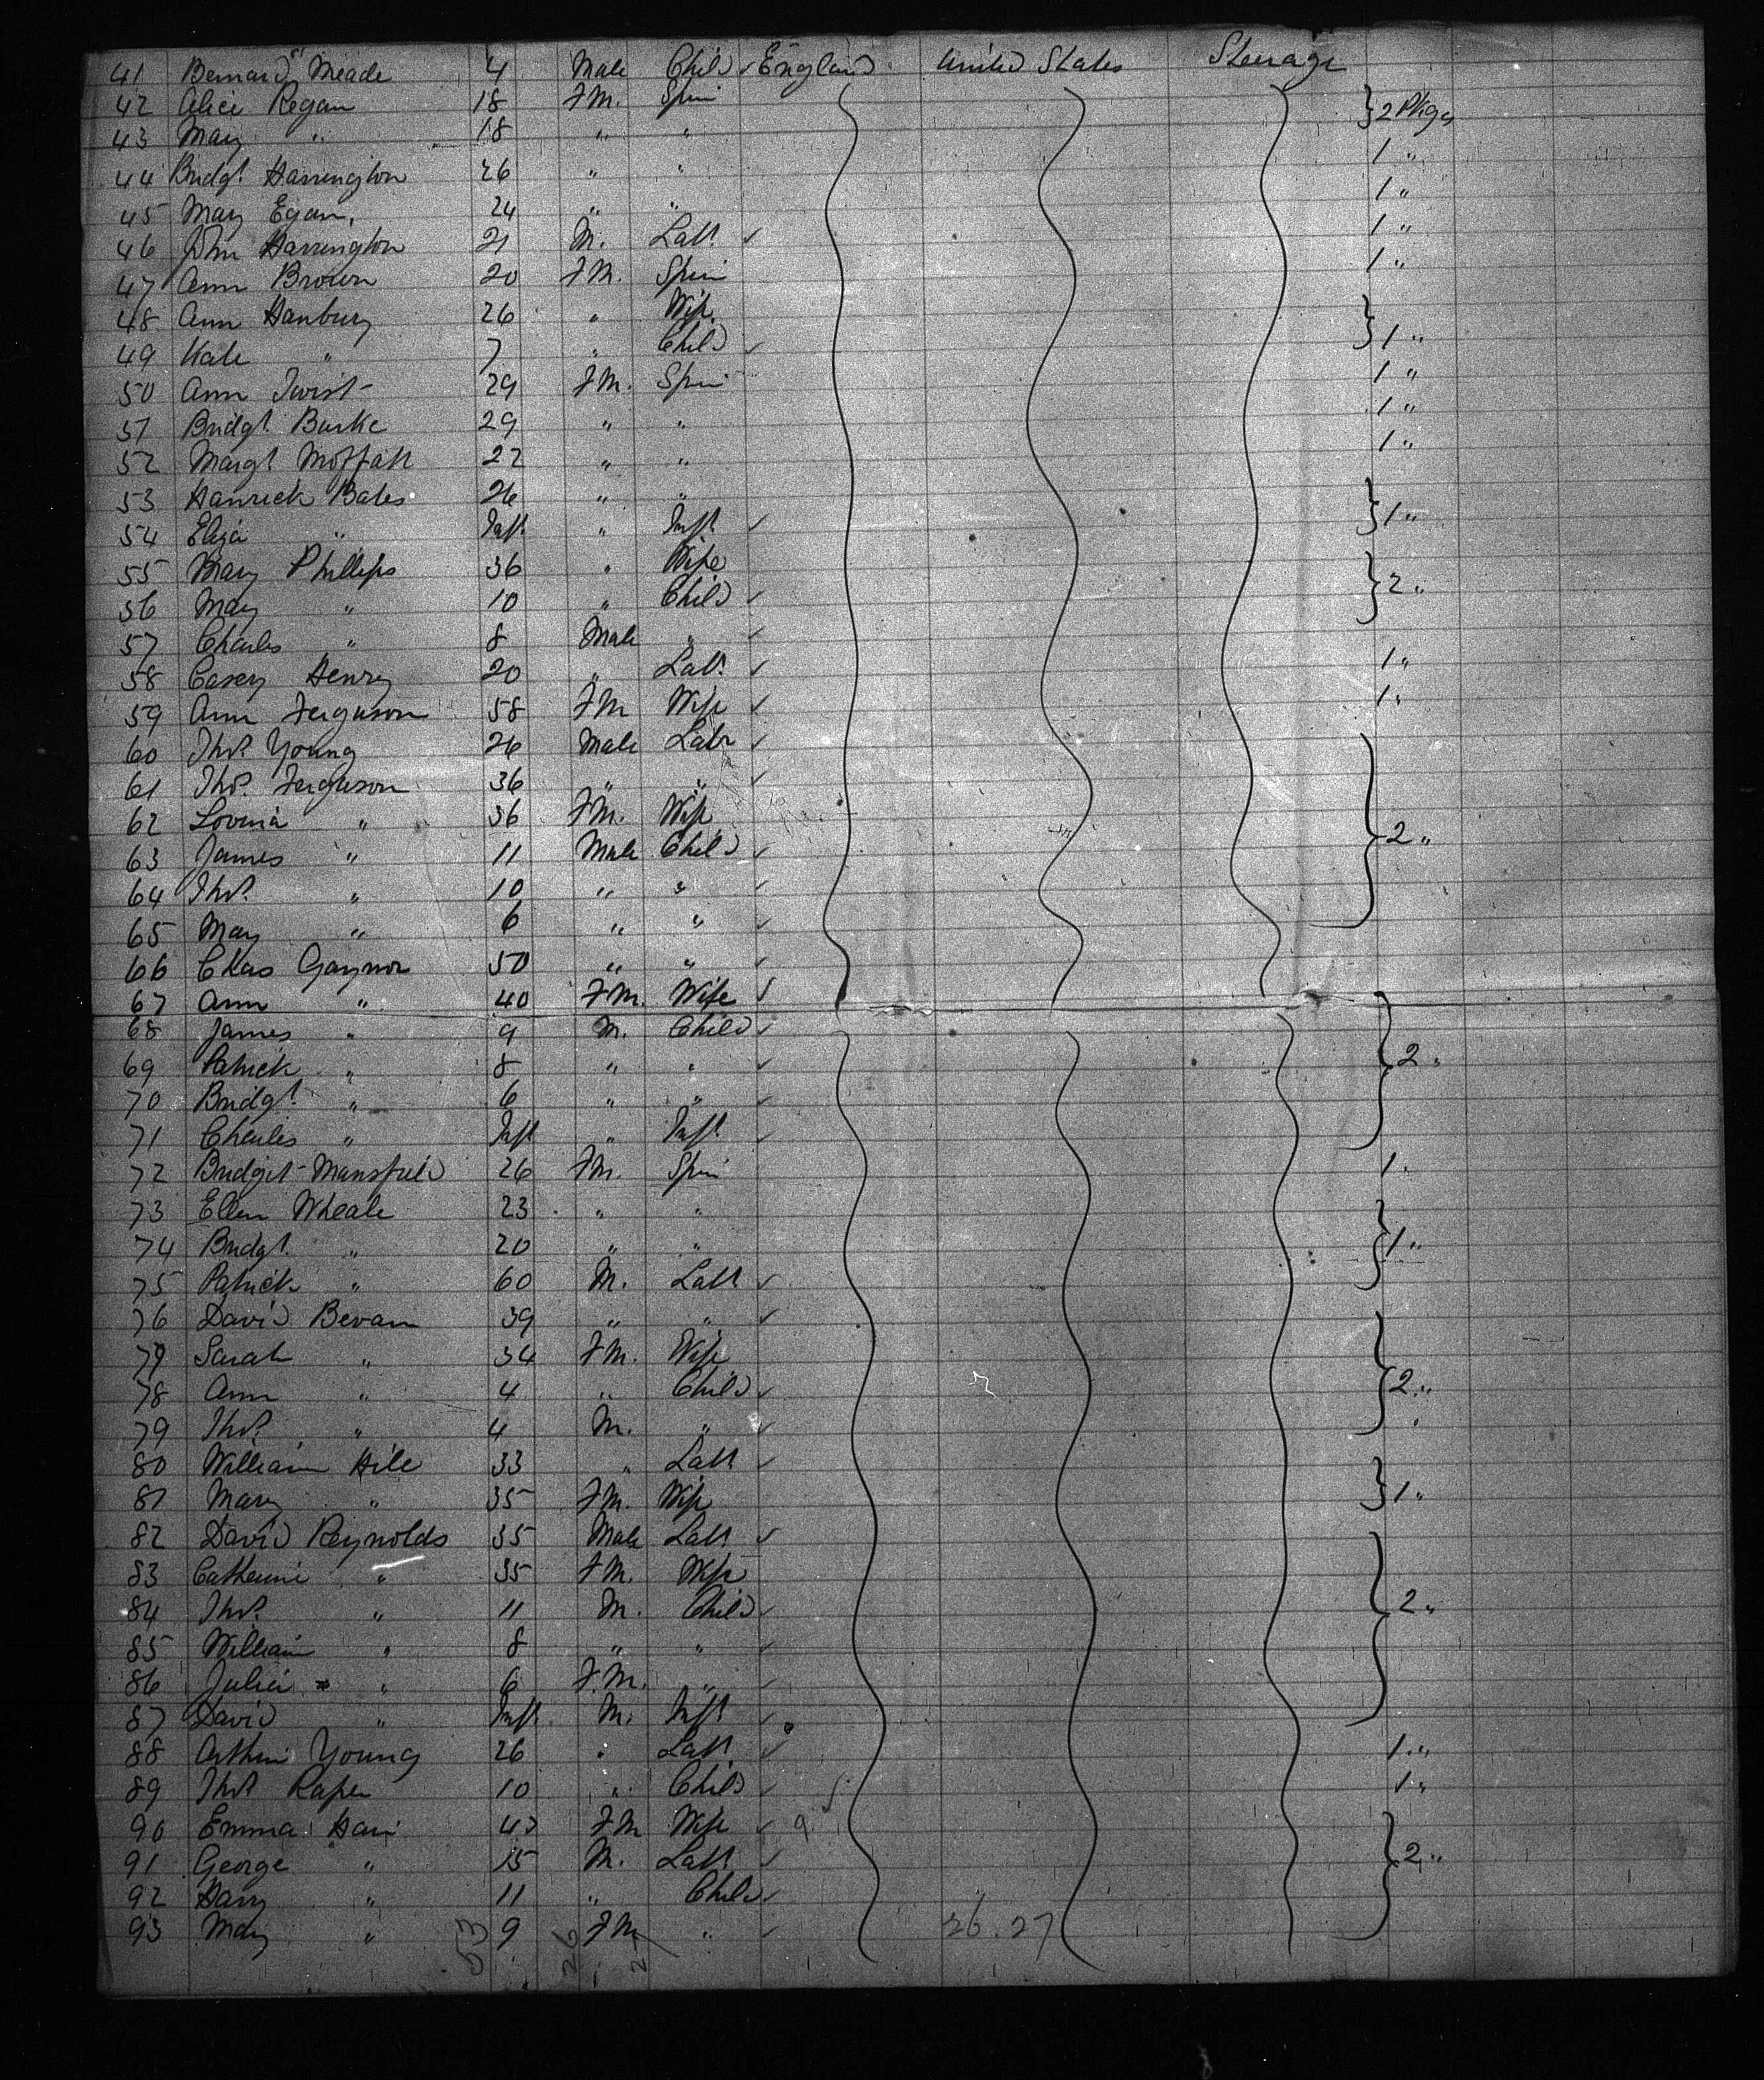 41 Bernard Meade 4 Male Child ✓ England United States Steerage
42 Alice Regan 18 FM. Spin } 2 Pkgs
43 Mary " 18 " "
44 Bridgt. Harrington 26 " " 1 "
45 Mary Egan. 24 " " 1 "
46 John Harrington 21 M. Labr. ✓ 1 "
47 Ann Brown 20 FM. Spin 1 "
48 Ann Hanbury 26 " Wife
49 Kate " 7 " Child ✓ } 1 "
50 Ann Twist 29 FM. Spin 1 "
51 Bridgt. Burke 29 " " 1 "
52 Margt. Moffatt 22 " " 1 "
53 Hanrick Bates 26 " "
54 Eliza " Inft. " Inft. ✓ } 1 "
55 Mary Phillips 36 " Wife
56 Mary " 10 " Child ✓ } 2 "
57 Charles " 8 Male " ✓
58 Casey Henry 20 " Labr. ✓ 1 "
59 Ann Ferguson 58 FM Wife ✓ 1 "
60 Thos. Young 26 Male Labr ✓
61 Thos. Ferguson 36 " " ✓
62 Lovina " 36 FM. Wife
63 James " 11 Male Child ✓ } 2 "
64 Thos. " 10 " " ✓
65 Mary " 6 " " ✓
66 Chas Gaynor 50 " " ✓
67 Ann " 40 FM. Wife ✓
68 James " 9 M. Child ✓
69 Patrick " 8 " " ✓ } 2 "
70 Bridgt. " 6 " " ✓
71 Charles " Inft " Inft. ✓
72 Bridgit Mansfield 26 FM. Spin 1 "
73 Ellen Wheale 23 " "
74 Bridgt. " 20 " " } 1 "
75 Patrick " 60 M. Labr. ✓
76 David Bevan 39 " " ✓
77 Sarah " 34 FM. Wife
78 Ann " 4 " Child ✓ } 2 "
79 Thos. " 4 M. " ✓
80 William Hill 33 " Labr. ✓
81 Mary " 35 FM. Wife } 1 "
82 David Reynolds 35 Male Labr. ✓
83 Catherine " 35 FM. Wife
84 Thos. " 11 M. Child ✓ } 2 "
85 William " 8 " " ✓
86 Julia " 6 F.M. " ✓
87 David " Inft. M. Inft. ✓
88 Arthur Young 26 " Labr. ✓ 1 "
89 Thos Raper 10 " Child ✓ 1 "
90 Emma 43 FM Wife ✓ 9
91 George " 15 M. Labr. ✓ } 2 "
92 Harry " 11 " Child ✓
93 Mary " 9 FM " ✓ 26.27
53 26 27